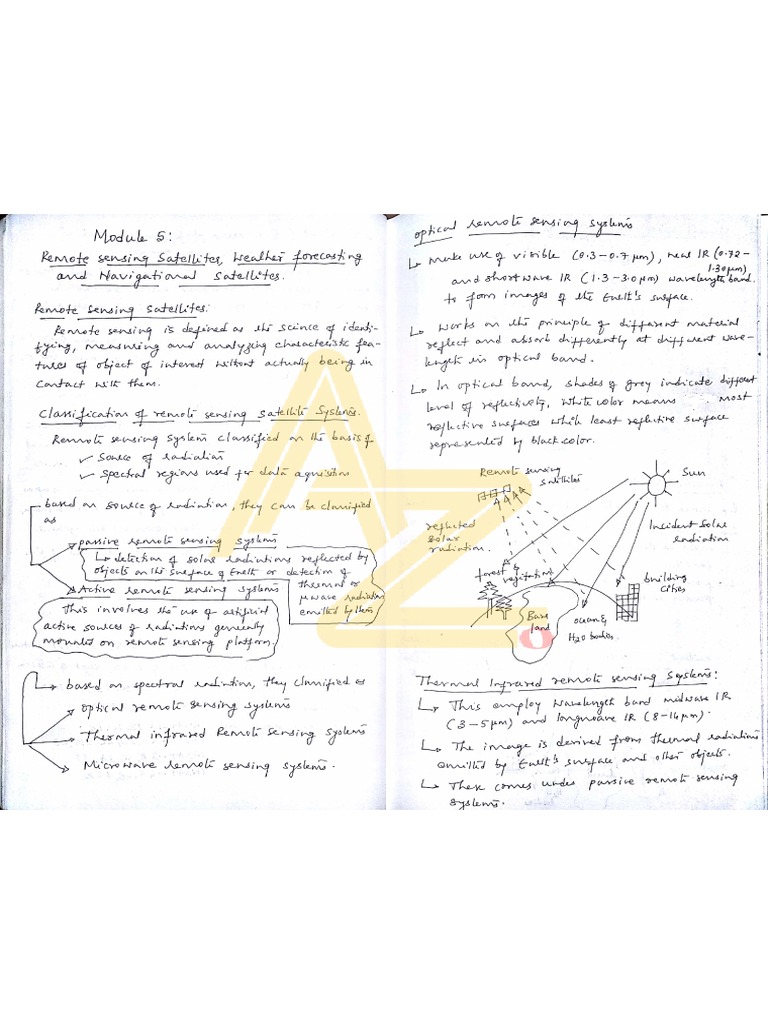 Module 5:
Remote sensing Satellites, Weather forecasting
and Navigational Satellites.
Remote Sensing Satellites:
Remote sensing is defined as the science of identi-
fying, measuring and analyzing characteristic fea-
tures of object of interest without actually being in
contact with them.
Classification of remote sensing Satellite Systems.
Remote sensing System classified on the basis of
✓ Source of radiation
✓ Spectral regions used for data aquisition
based on source of radiation, they can be classified
as
passive remote sensing systems
↳ detection of solar radiations reflected by
objects on the surface of Earth or detection of
thermal or
μwave radiations
emitted by them
Active remote sensing systems
This involves the use of artificial
active sources of radiations generally
mounted on remote sensing platform
↳ based on spectral radiation, they classified as
optical remote sensing systems
Thermal infrared Remote sensing systems
Microwave remote sensing systems.
optical remote sensing systems
↳ make use of visible (0.3-0.7 μm), near IR (0.72-
1.30μm)
and shortwave IR (1.3-3.0μm) wavelength band
to form images of the Earth's surface.
↳ Works on the principle of different material
reflect and absorb differently at different wave-
length in optical band.
↳ In optical band, shades of grey indicate different
level of reflectivity, white color means most
reflective surfaces while least reflective surface
represented by black color.
Remote sensing
satellites
Sun
reflected
solar
radiation.
Incident solar
radiation
forest &
vegetation
building
cities
Bare
land
ocean &
H2O bodies
Thermal Infrared remote sensing Systems:
↳ This employ wavelength band midwave IR
(3-5μm) and longwave IR (8-14μm).
↳ The image is derived from thermal radiations
emitted by Earth's surface and other objects.
↳ These comes under passive remote sensing
systems.
AZ